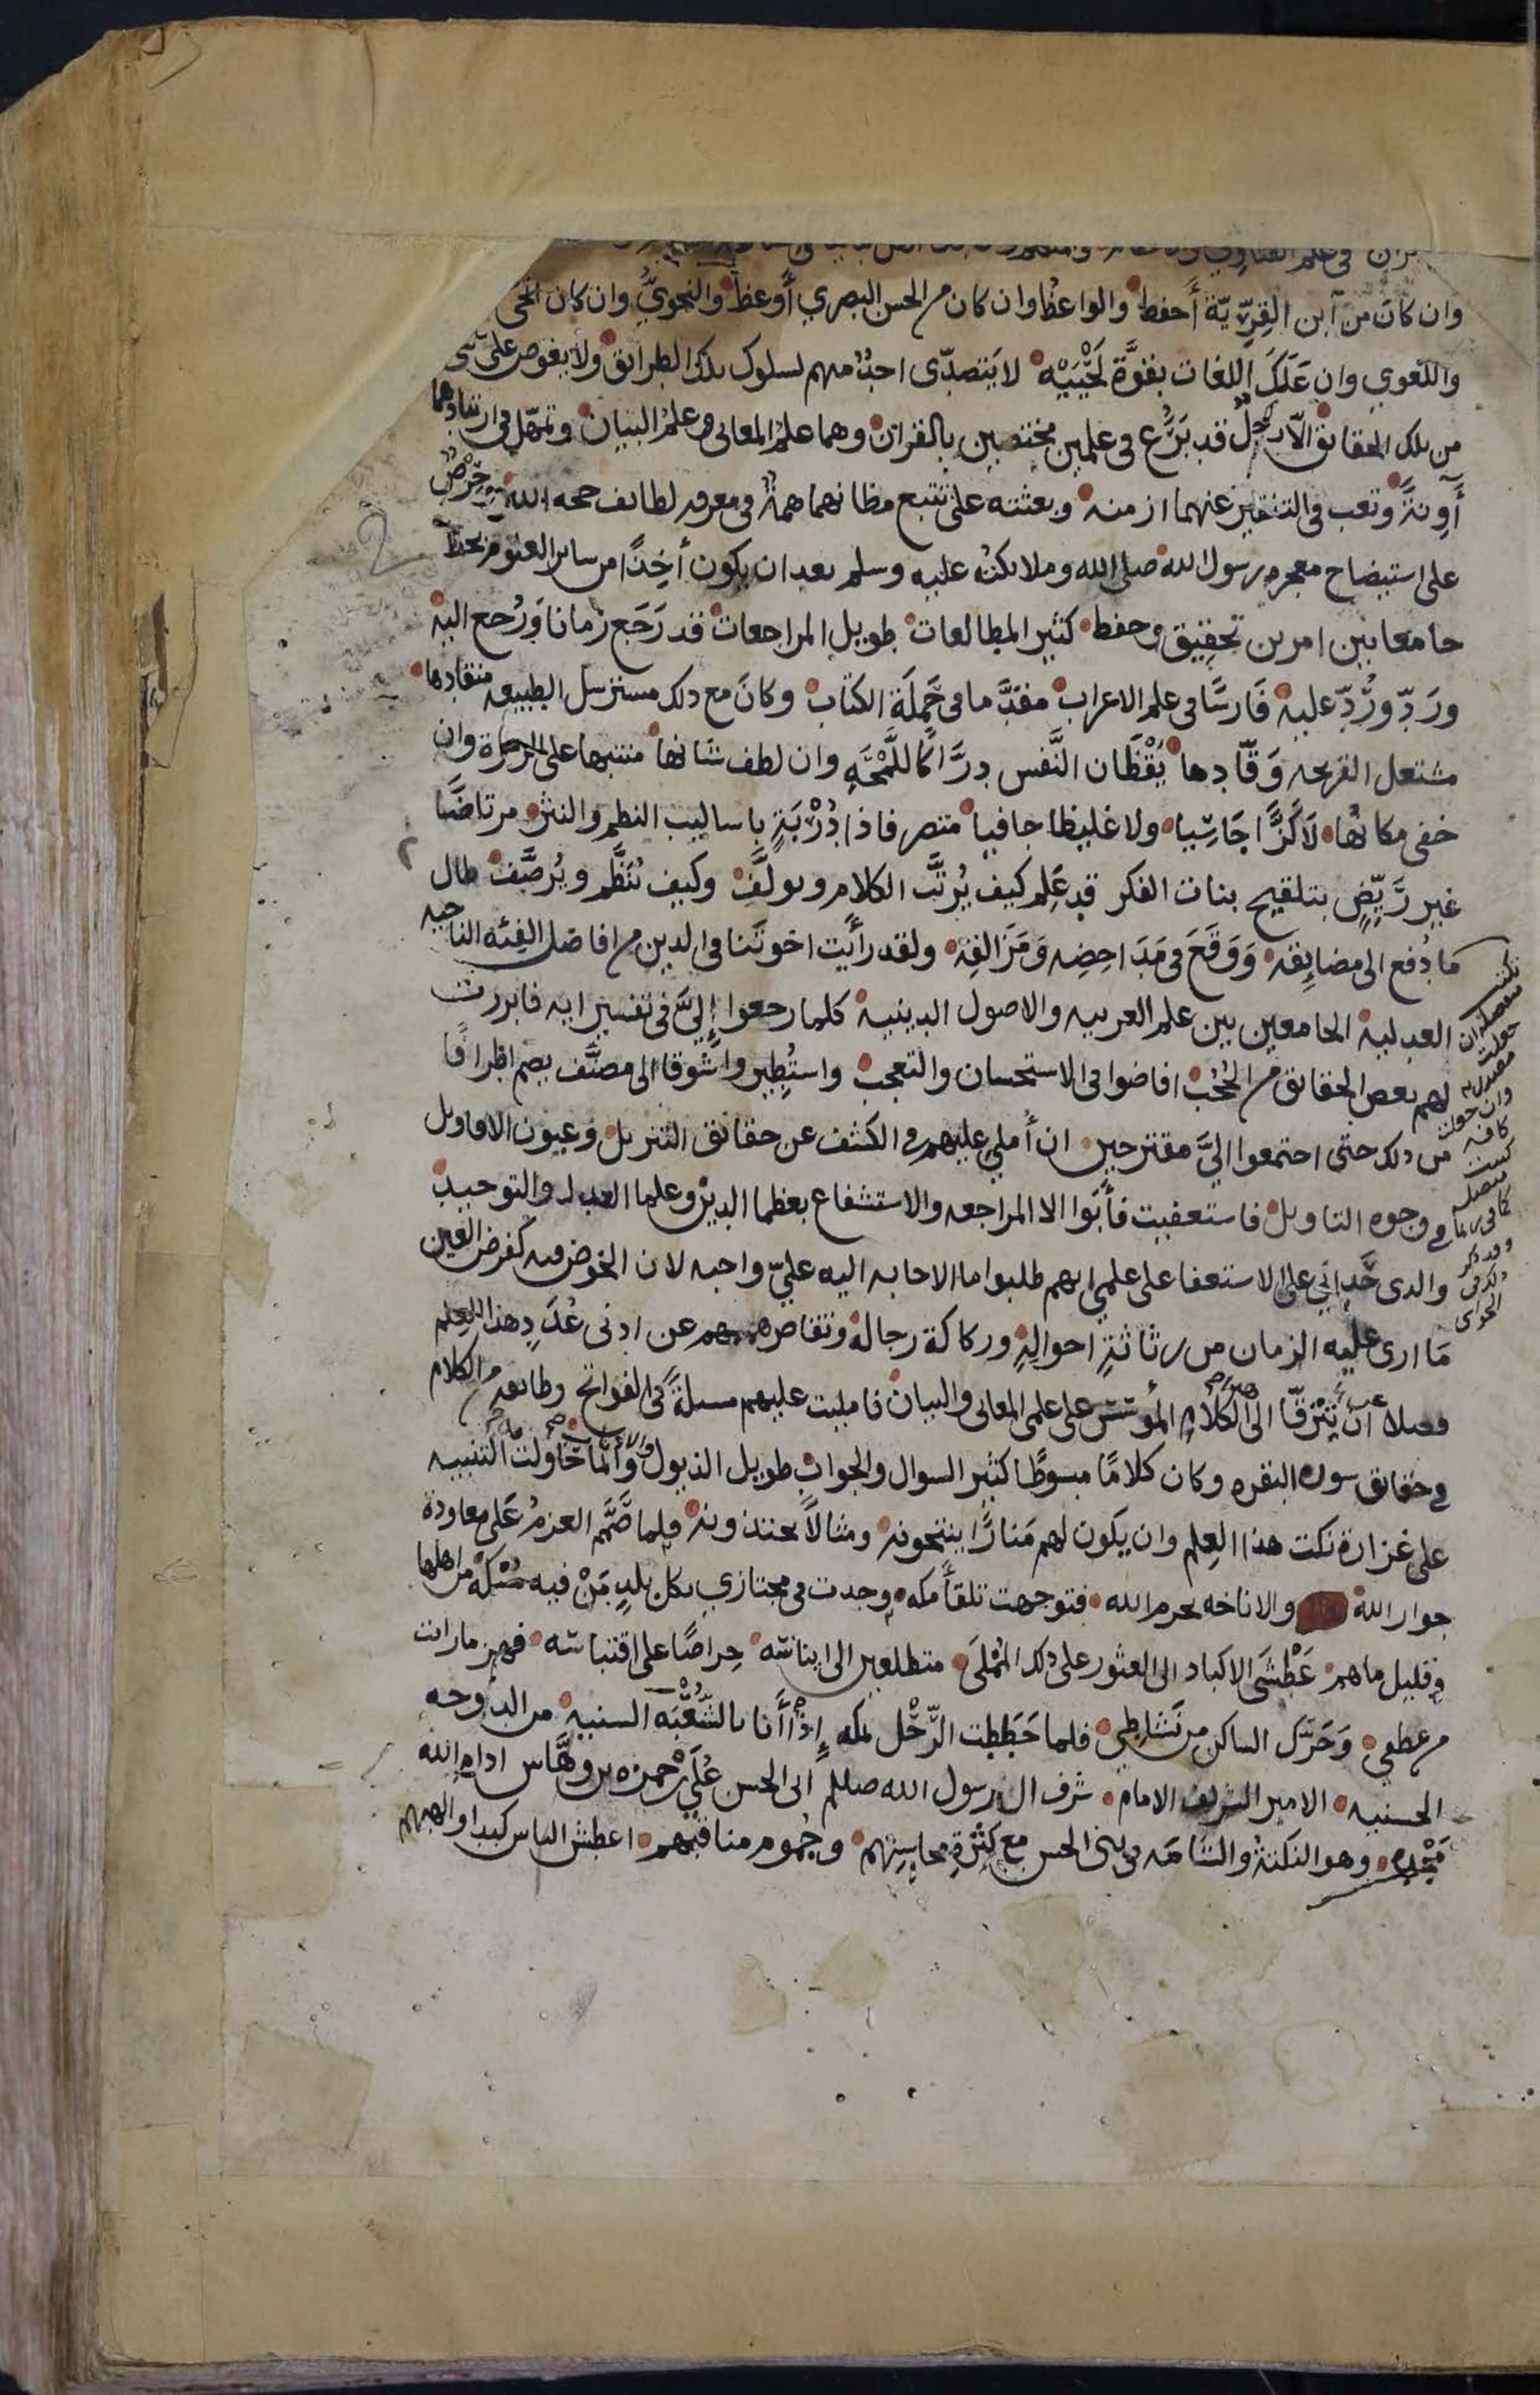 وان كان من ابن القِرِّيّة أحفظ والواعظ وان كان من الحسن البصري أوعظ والنحويُّ وان كان انحى
واللغوي وان عَلَكَ اللغات بقوّة لَحْيَيْهِ لا يَتصدّى احدٌ منهم لسلوك تلك الطرائق ولا يغوص على شي
من تلك الحقائق الّا رجلٌ قد بَرَع فى علمين مختصين بالقران وهما علمُ المعانى وعلمُ البيان وتمهّل فى ارتيادهما
آوِنةً وتعب فى التنقير عنهما ازمنه وبعثته على تتبع مظانهما همةٌ فى معرفه لطائف حجه الله وحِرْصٌ
على استيضاح معجزه رسول الله صلى الله وملائكته عليه وسلم بعد ان يكون أخِذًا من سائر العلوم بحظ
جامعا بين امرين تحقيق وحفظ كثير المطالعات طويل المراجعات قد رَجَع زمانا وَرُجع اليه
ورَدّ ورُدّ عليه فَارسًا فى علم الاعراب مقدَّما فى حَمَلَة الكتاب وكانَ مع ذلك مسترسل الطبيعه منقادها
مشتعل القريحه وَقّادها يَقْظَان النَّفس درَّاكًا للَّمْحَةِ وان لطف شانها منتبها على الرمزة وان
خفى مكانها لَا كَزًّا جَاسِيا ولا غليظا جافيا متصرفا ذا دُرْبَةٍ باساليب النظم والنثر مرتاضًا
غير رَيِّضٍ بتلقيح بنات الفكر قد عَلِم كيف يُرتَّب الكلام ويولَّف وكيف يُنَظَّم ويُرصَّف طال
مَا دُفع الى مضايِقه وَوَقَعَ فى مَدَاحِضِه وَمَزَالقِه ولقد رأيت اخوتَنا فى الدين من افاضل الفِئه الناجيه
العدليه الجامعين بين علم العربيه والاصول الدينيه كلما رجعوا إليَّ فى تفسير ايه فابرزت
لهم بعض الحقائق من الحُجُب افاضوا فى الاستحسان والتعجب واستُطِيروا شوقا الى مصنَّف يضم اطرافًا
من ذلك حتى اجتمعوا اليَّ مقترحين ان أملي عليهم فى الكشف عن حقائق التنزيل وعيون الاقاويل
فى وجوه التاويل فاستعفيت فأبَوا الا المراجعه والاستشفاع بعظما الدين وعلما العدل والتوحيد
والذى حَدانِي على الاستعفا على علمي انهم طلبوا ما الاجابه اليه عليّ واجبه لان الخوض فيه كفرض العين
مَا ارى عليه الزمان من رثاثةِ احوالِهِ وركاكة رجاله وتقاصر هممهم عن ادنى عُدَدِ هذا العِلم
فضلا أنْ تترقّا الى الكلام المؤسّس على علمى المعانى والبيان فامليت عليهم مسئلةً فى الفواتح وطائفه من الكلام
فى حقائق سوره البقره وكان كلامًا مبسوطًا كثير السوال والجواب طويل الذيول والاذناب وانّما حَاولتُ التنبيه
على غزارة نكت هذا العِلم وان يكون لهم مَنارًا ينتحونه ومثالاً يحتذونه فلما صَمَّم العزمُ على معاودة
جوار الله والاناخه بحرم الله فتوجهت تلقأ مكه وجدت فى مجتازي بكل بلدٍ مَنْ فيه مُسْكَةٌ من اهلها
وقليل ما هم عَطْشَى الاكباد الى العثور على ذلك المُمْلَى متطلعين الى ايناسه حِراصًا على اقتباسه فهز مارايت
من عطفى وَحَرَّك الساكن من نَشَاطِي فلما حَطَطت الرَّحْل بمكه إذا أنا بالشُّعْبَه السنيه من الدوحه
الحسنيه الامير الشريف الامام شرف ال رسول الله صللم ابى الحسن عُلَي بن حمزه بن وهَّاس ادام الله
مَجْده وهو النكتة والشامه فى بنى الحسن مع كثرةِ محاسِنِهم وجُموم مناقبهم اعطش الناس كبدا والهبهم